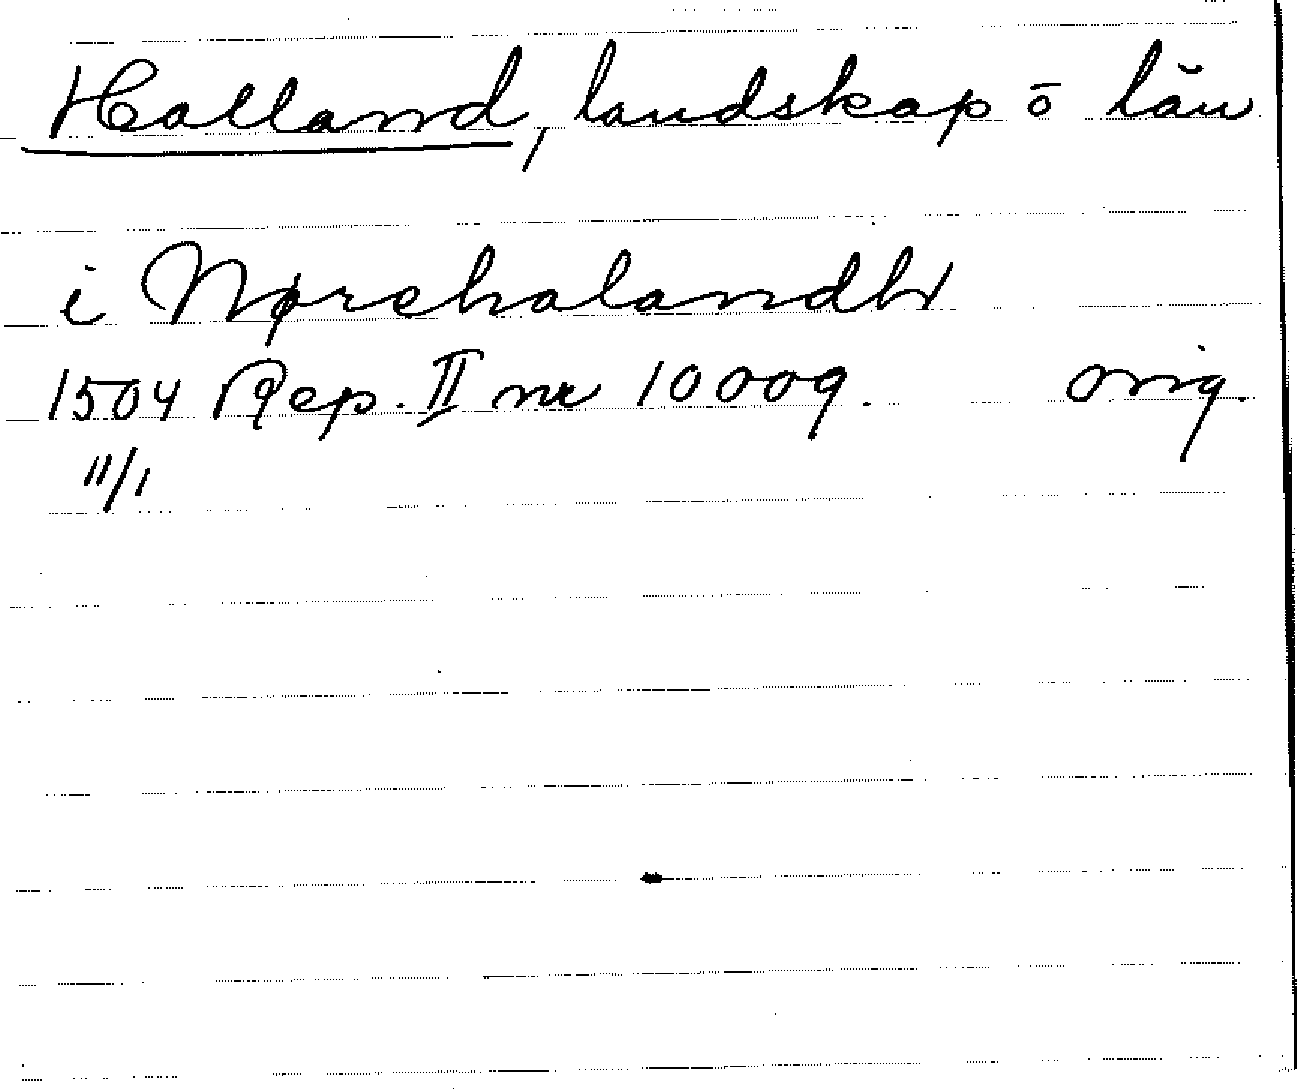 Halland, landskap ō län
i Nørrehalandh
1504 Rep. II nr 10009. orig.
11/1